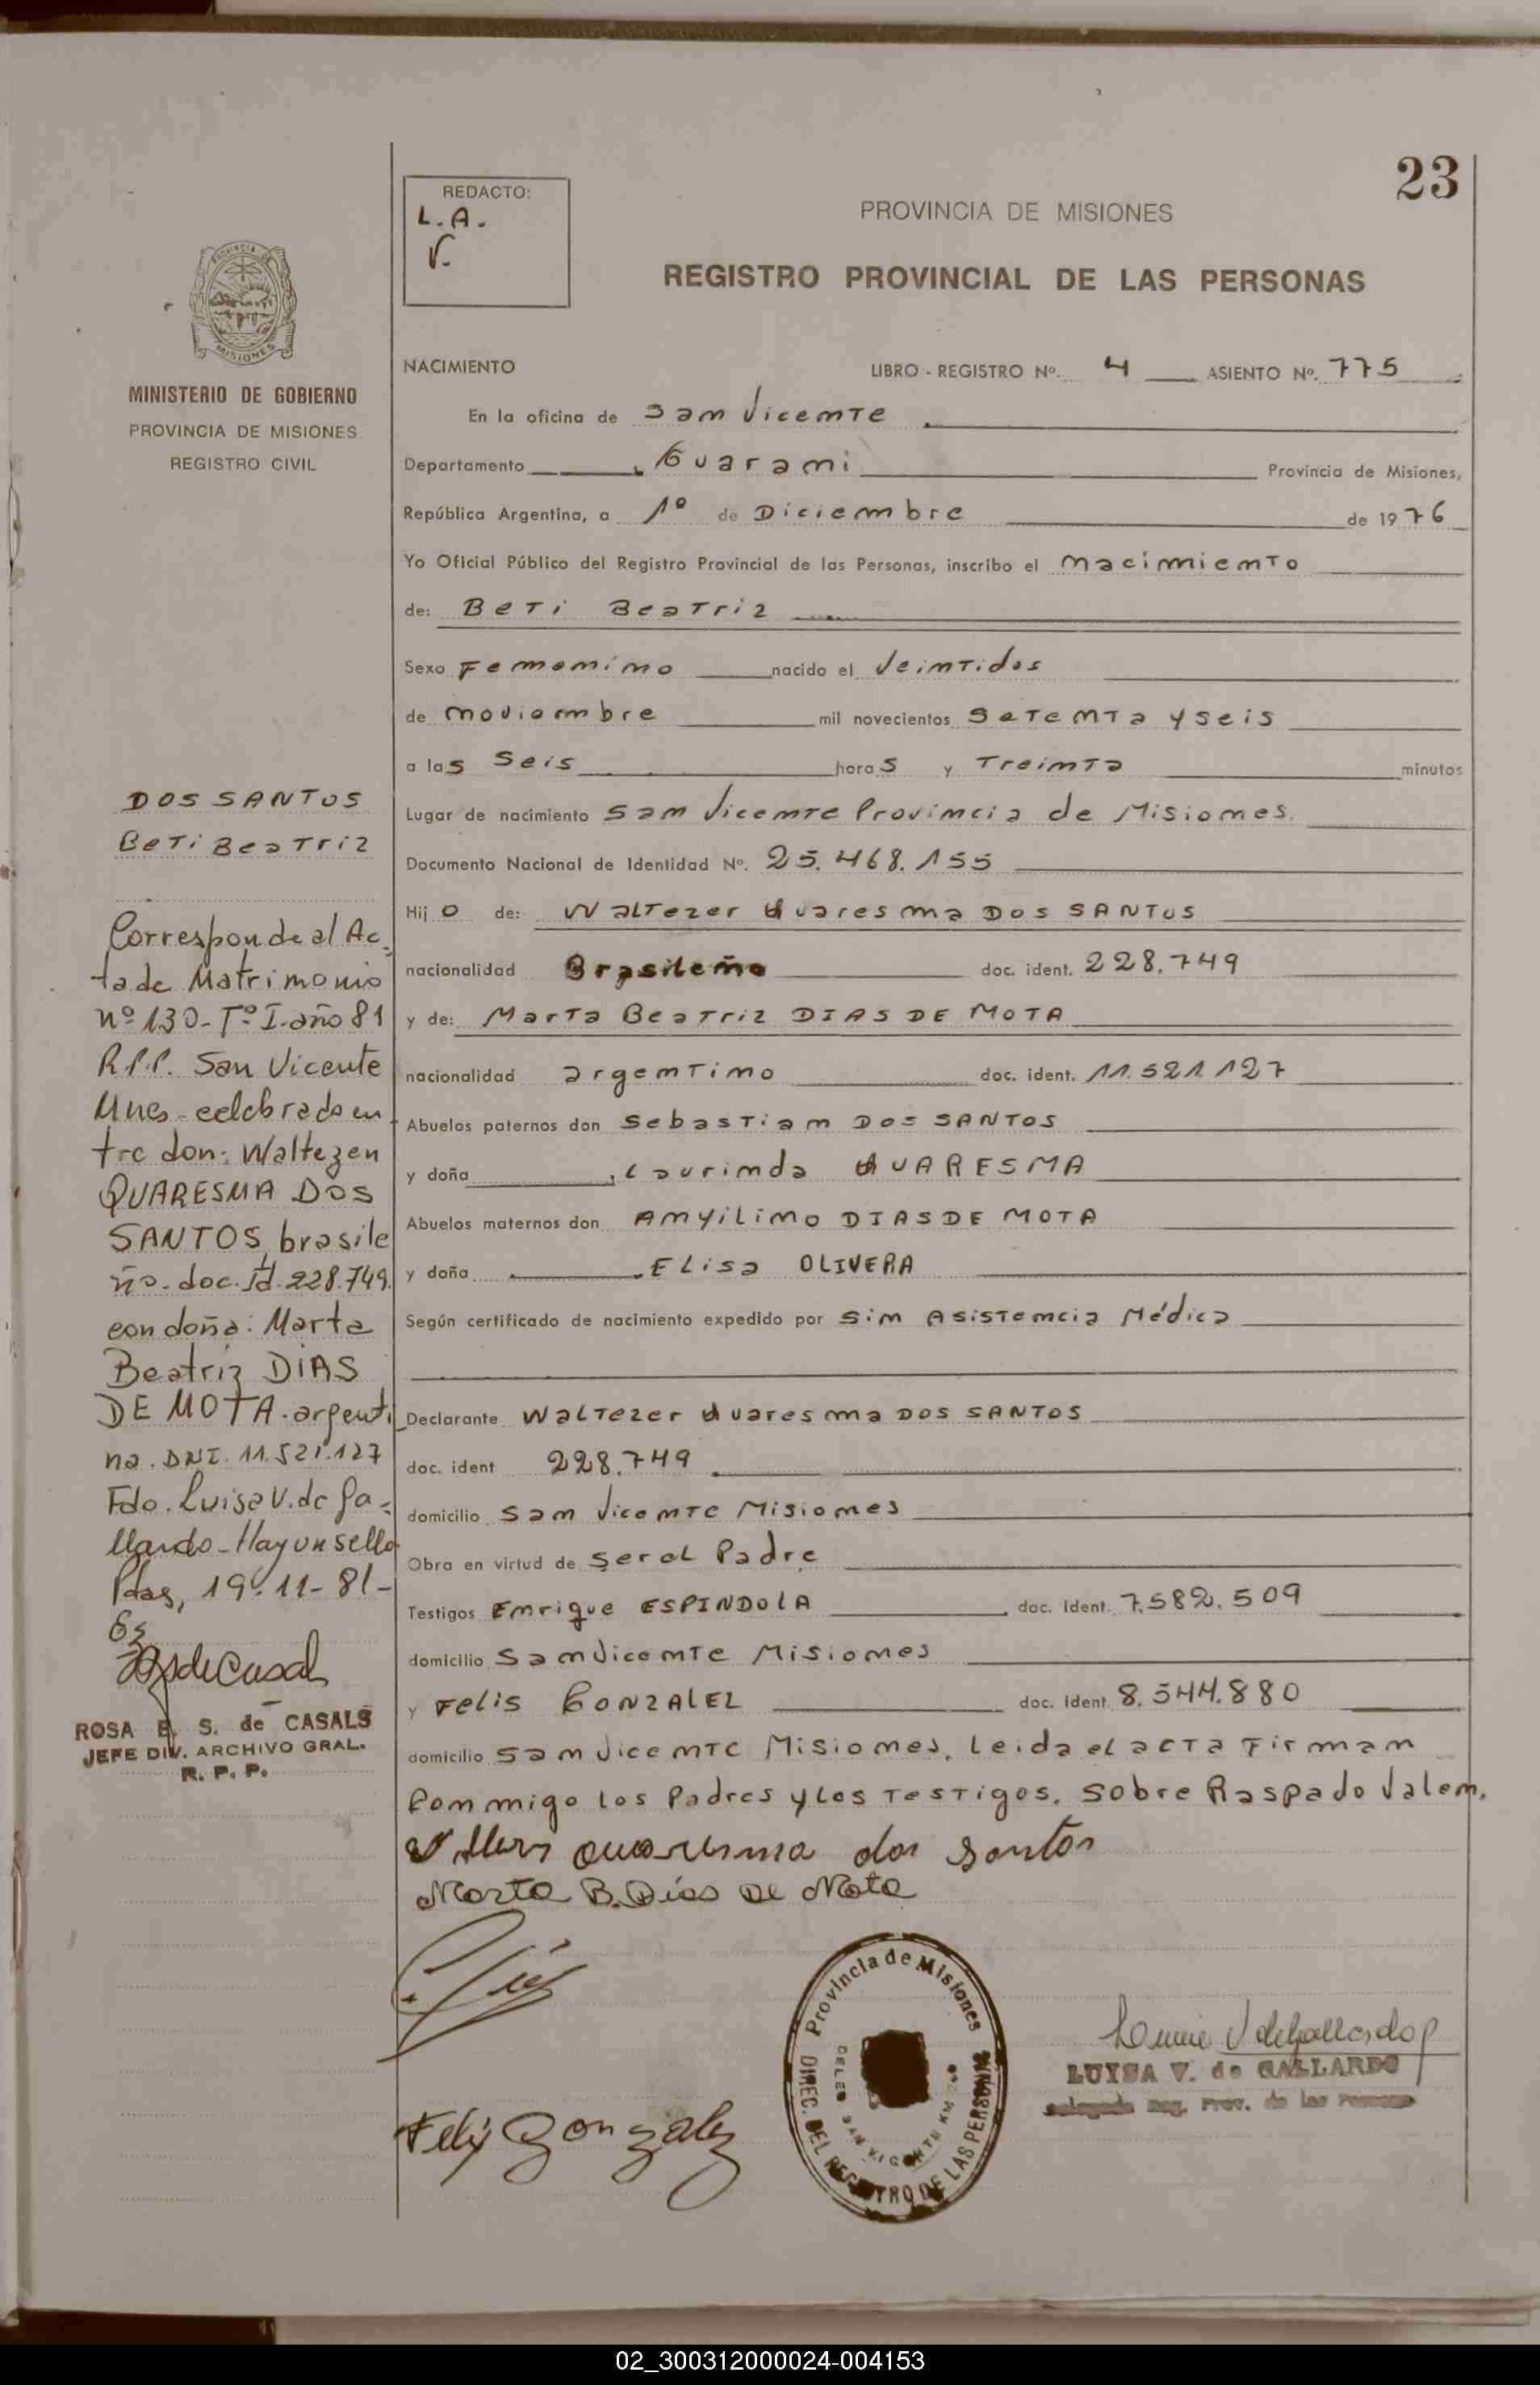 23
REDACTO:
L. A.
V.
PROVINCIA DE MISIONES
REGISTRO PROVINCIAL DE LAS PERSONAS
PROVINCIA DE
MISIONES
MINISTERIO DE GOBIERNO
PROVINCIA DE MISIONES
REGISTRO CIVIL
NACIMIENTO LIBRO - REGISTRO Nº. 4 ASIENTO Nº. 775
En la oficina de San Vicente
Departamento Guarani Provincia de Misiones,
República Argentina, a 1º de Diciembre de 1976
Yo Oficial Público del Registro Provincial de las Personas, inscribo el nacimiento
de: Beti Beatriz
Sexo Femenino nacido el Veintidos
de noviembre mil novecientos Setenta y seis
a las Seis horas y Treinta minutos
Lugar de nacimiento San Vicente Provincia de Misiones.
Documento Nacional de Identidad Nº. 25.468.155
Hijo de: Waltezer Quaresma DOS SANTOS
nacionalidad Brasileño doc. ident. 228.749
y de: Marta Beatriz DIAS DE MOTA
nacionalidad argentino doc. ident. 11.521.127
Abuelos paternos don Sebastian DOS SANTOS
y doña Laurinda QUARESMA
Abuelos maternos don Anyilino DIAS DE MOTA
y doña Elisa OLIVERA
Según certificado de nacimiento expedido por Sin Asistencia Médica
Declarante Waltezer Quaresma DOS SANTOS
doc. ident 228.749
domicilio San Vicente Misiones
Obra en virtud de Ser el Padre
Testigos Enrique ESPINDOLA doc. Ident. 7.582.509
domicilio San Vicente Misiones
y Felis GONZALEZ doc. Ident. 8.544.880
domicilio San Vicente Misiones. Leida el acta Firman
Conmigo los Padres y los Testigos. Sobre Raspado Valen.
quaresma dos santos
Marta B. Dias De Mota
Felix Gonzalez
Provincia de Misiones
DIREC. DEL REGISTRO DE LAS PERSONAS
DELEG SAN VICENTE
LUISA V. de GALLARDO
Delegada Reg. Prov. de las Personas
DOS SANTOS
Beti Beatriz
Corresponde al Ac-
ta de Matrimonio
nº 130- Tº I. año 81
R.P.P. San Vicente
Mnes - celebrado en
tre don: Waltezen
QUARESMA DOS
SANTOS, brasile
ño. doc. Id. 228.749.
con doña: Marta
Beatriz DIAS
DE MOTA. argenti
na. DNI. 11.521.127
Fdo. Luisa V. de Ga-
llardo - Hay un sello
Pdas, 19-11-81-
ROSA E. S. de CASALS
JEFE DIV. ARCHIVO GRAL.
R. P. P.
02_300312000024-004153